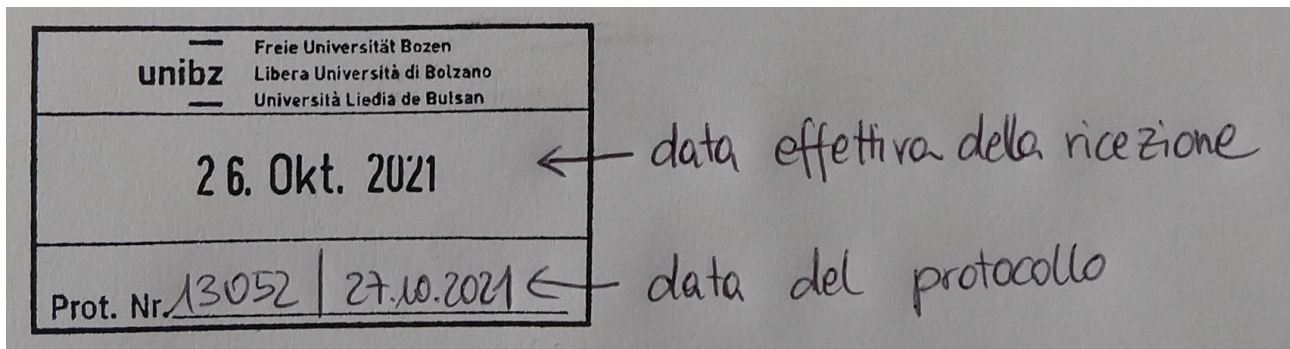 unibz
Freie Universität Bozen
Libera Università di Bolzano
Università Liedia de Bulsan
26. Okt. 2021
data effettiva della ricezione
Prot. Nr. 13052 | 27.10.2021
data del protocollo